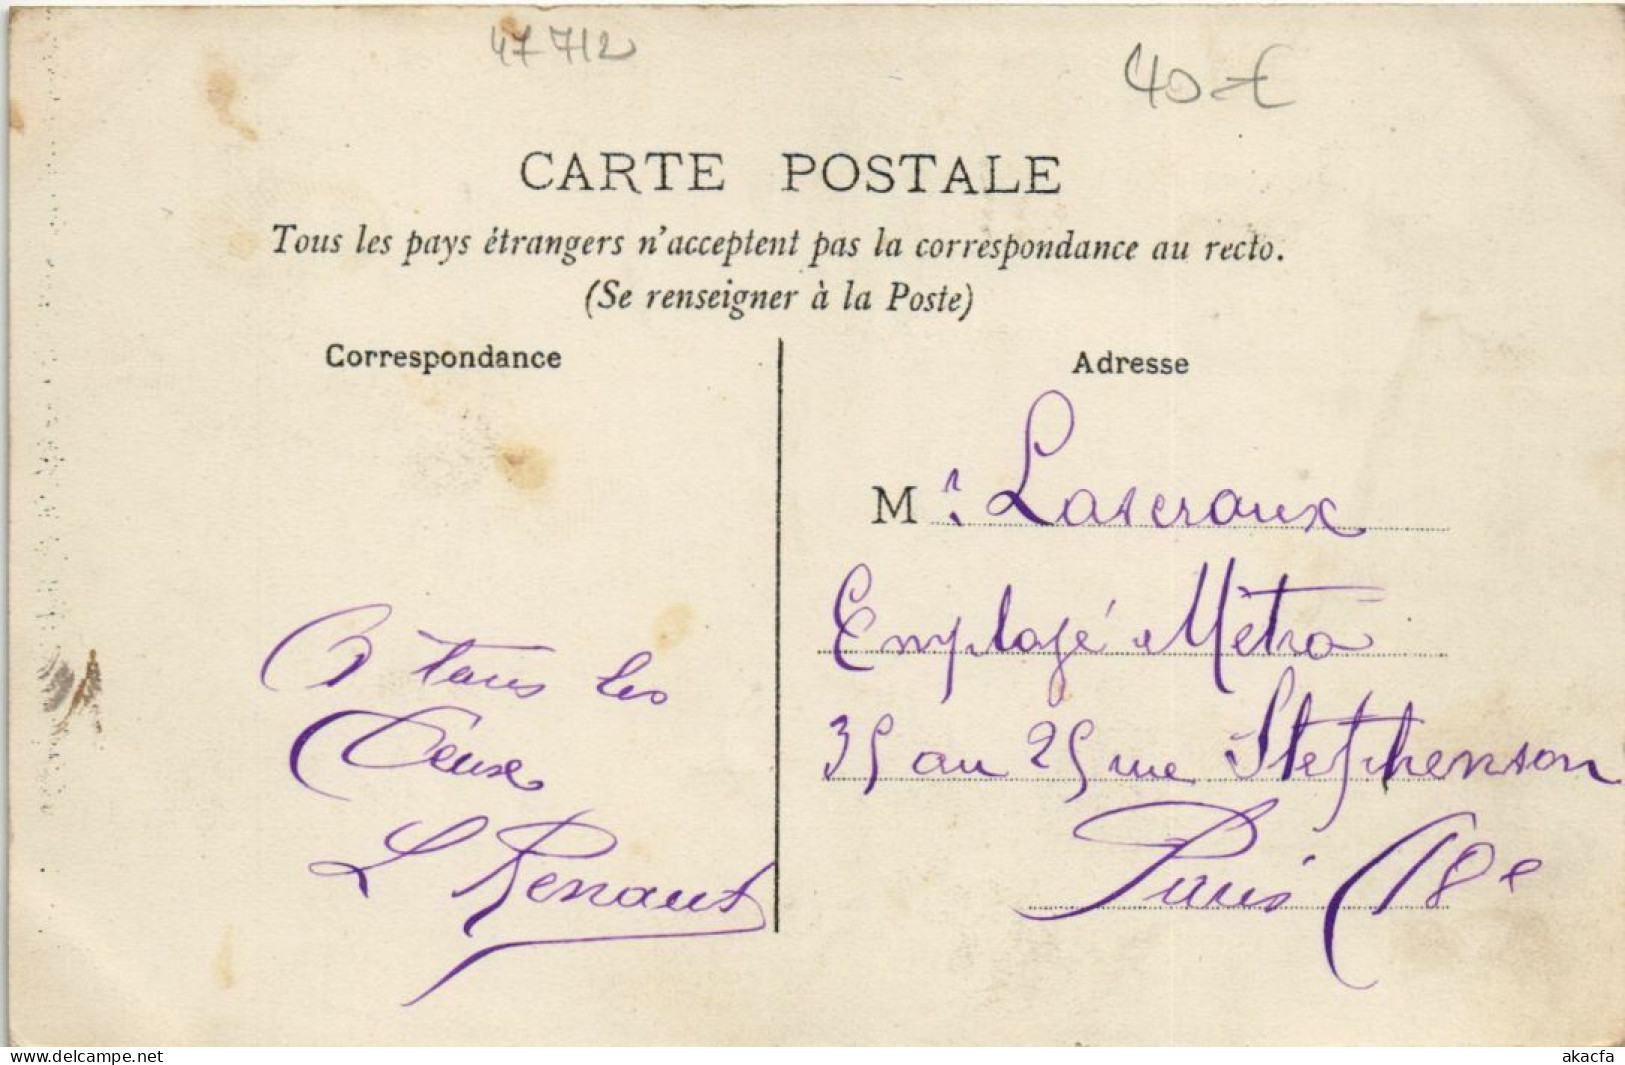 47712
40 €
CARTE POSTALE
Tous les pays étrangers n'acceptent pas la correspondance au recto.
(Se renseigner à la Poste)
Correspondance
A tous les
Ceux
L Renaut
Adresse
Mr Laseraux
Employé Métro
35 au 25 rue Stephenson
Paris (18e
www.delcampe.net
akacfa